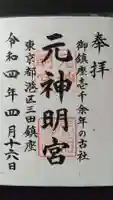 奉拝
御鎮座壱千余年の古社
元神明宮
東京都港区三田鎮座
令和四年四月十六日